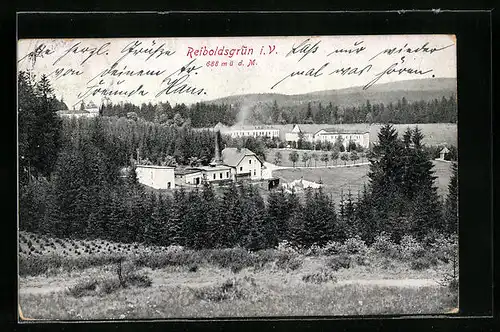 Reiboldsgrün i.V.
688 m ü d. M.
Die herzl. Grüße
von Deinem Fr.
freunde Hans.
laß nur wieder
mal was hören.